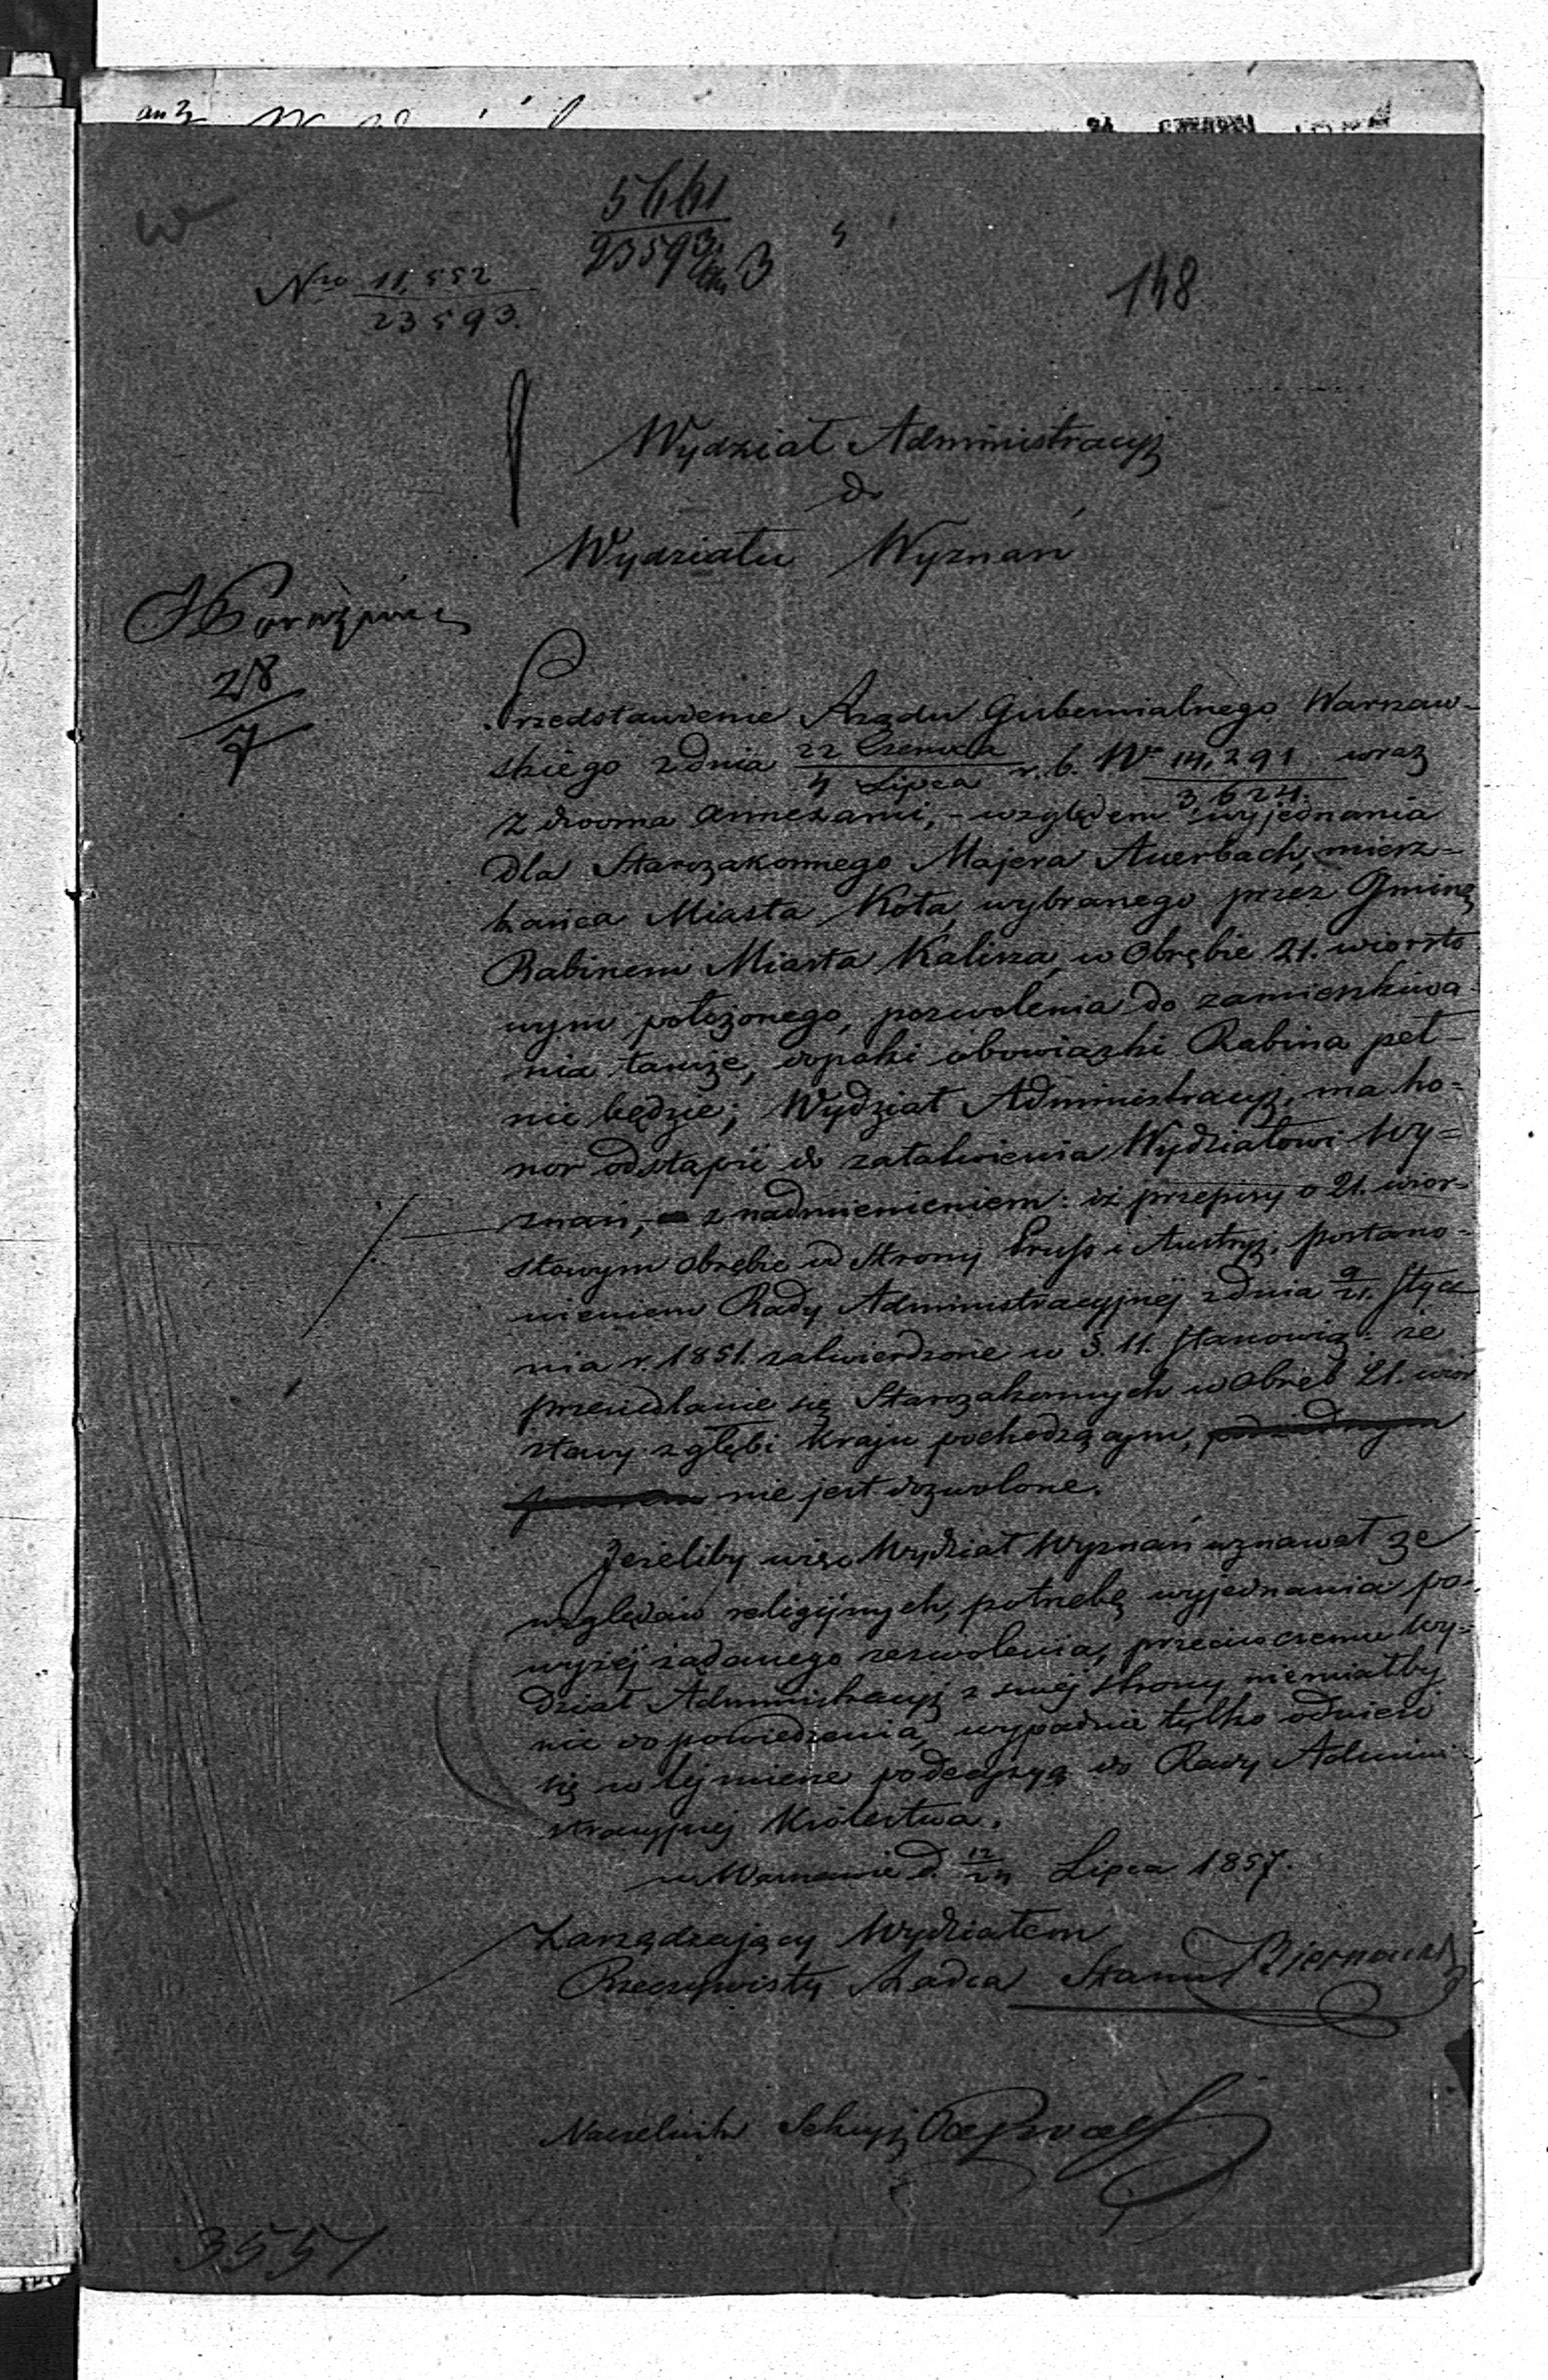 5661
23593
148
Nro 11,552
23593.
Wydział Administracyj
do
Wydziału Wyznań
28
7
Przedstawienie Rządu Gubernialnego Warszaw-
skiego z dnia 22 Czerwca / 4 Lipca r. b. Nr 14,291 / 3624. wraz
z dwoma annexami, - względem wyjednania
dla Starozakonnego Majera Auerbach, miesz-
kańca Miasta Koła, wybranego przez Gminę
Rabinem Miasta Kalisza, w obrębie 21. wiorsto
wym położonego, pozwolenia do zamieszkiwa-
nia tamże, dopóki obowiązki Rabina peł-
nić będzie; Wydział Administracyj, ma ho-
nor odstąpić do załatwienia Wydziałowi Wy-
znań, - z nadmienieniem: iż przepisy o 21. wior-
stowym obrębie od strony Pruss i Austryi, postano-
wieniem Rady Administracyjnej z dnia 9/21. Stycz
nia r. 1851. zatwierdzone w §. 11. stanowią: że
przesiedlanie się Starozakonnych w obręb 21. wior
stowy z głębi kraju pochodzącym,
nie jest dozwolone.
Jeżeliby więc Wydział Wyznań uznawał ze
względów religijnych, potrzebę wyjednania po-
wyżej żądanego zezwolenia, przeciw czemu Wy-
dział Administracyj z swej strony niemiałby
nic do powiedzenia, wypadnie tylko odnieść
się w tej mierze po decyzyą do Rady Admini-
stracyjnej Królestwa.
w Warszawie d. 12/24 Lipca 1857.
Zarządzający Wydziałem
Rzeczywisty Radca Stanu
Naczelnik Sekcyj
3551